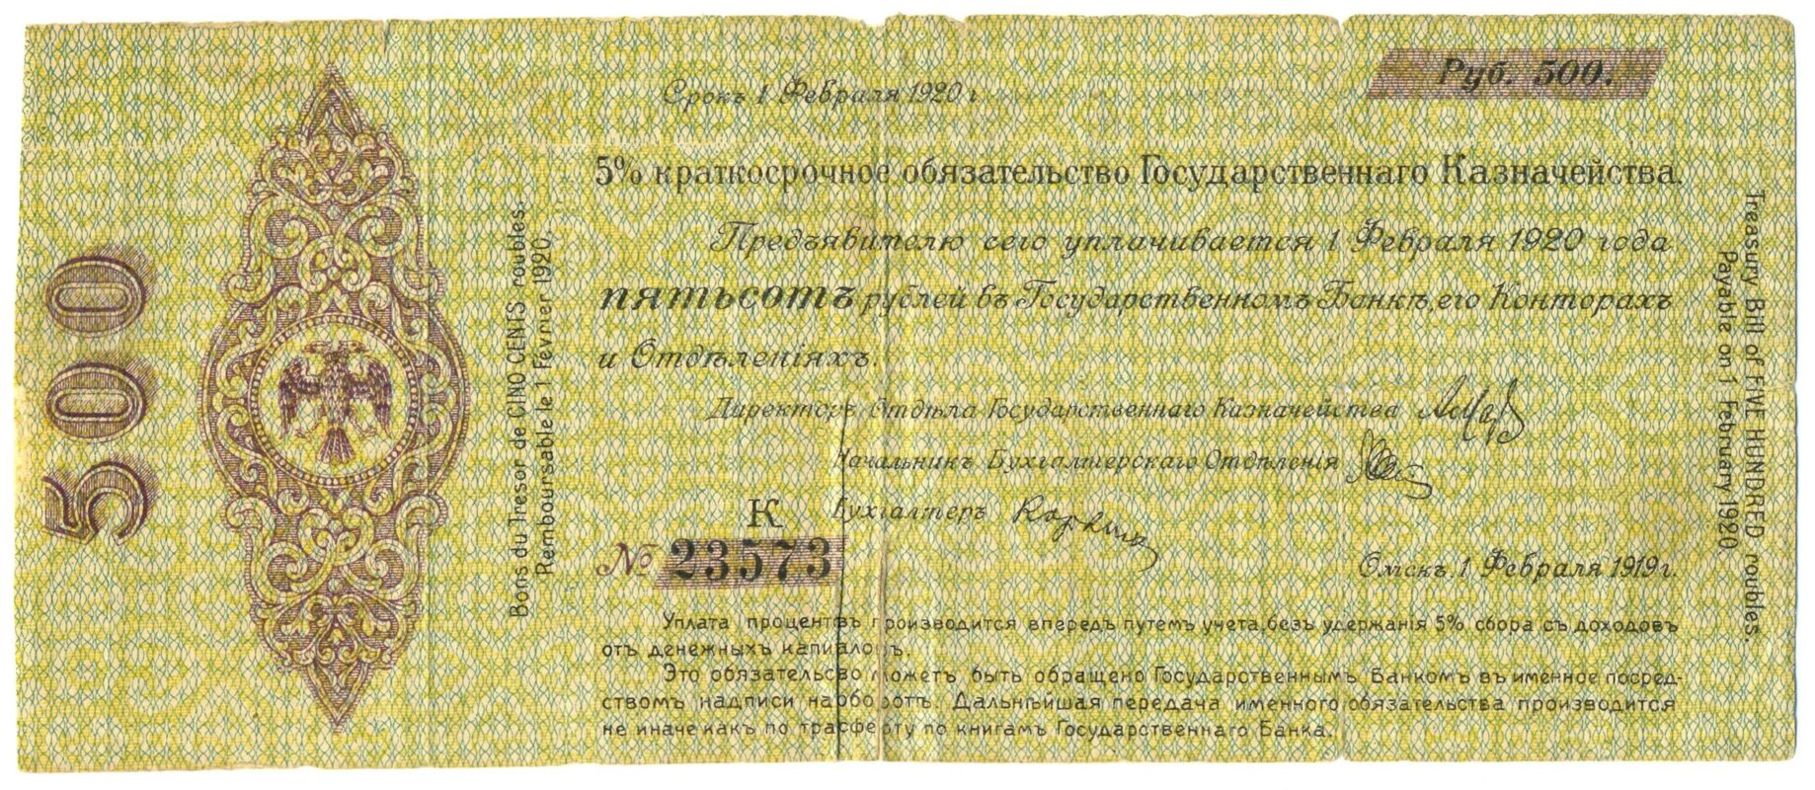 Руб. 500.
Срокъ 1 Февраля 1920 г.
5% краткосрочное обязательство Государственнаго Казначейства.
Предъявителю сего уплачивается 1 Февраля 1920 года
пятьсотъ рублей въ Государственномъ Банкѣ, его Конторахъ
и Отдѣленіяхъ.
Директоръ Отдѣла Государственнаго Казначейства
Начальникъ Бухгалтерскаго Отдѣленія
Бухгалтеръ
К
№ 23573
Омскъ, 1 Февраля 1919 г.
Уплата процентовъ производится впередъ путемъ учета, безъ удержанія 5% сбора съ доходовъ
отъ денежныхъ капиаловъ.
Это обязательсво можетъ быть обращено Государственнымъ Банкомъ въ именное посред-
ствомъ надписи на оборотъ. Дальнѣйшая передача именного обязательства производится
не иначе какъ по трасферту по книгамъ Государственнаго Банка.
500
Bons du Tresor de CINQ CENTS roubles.
Remboursable le 1 Février 1920.
Treasury Bill of FIVE HUNDRED roubles.
Payable on 1 February 1920.